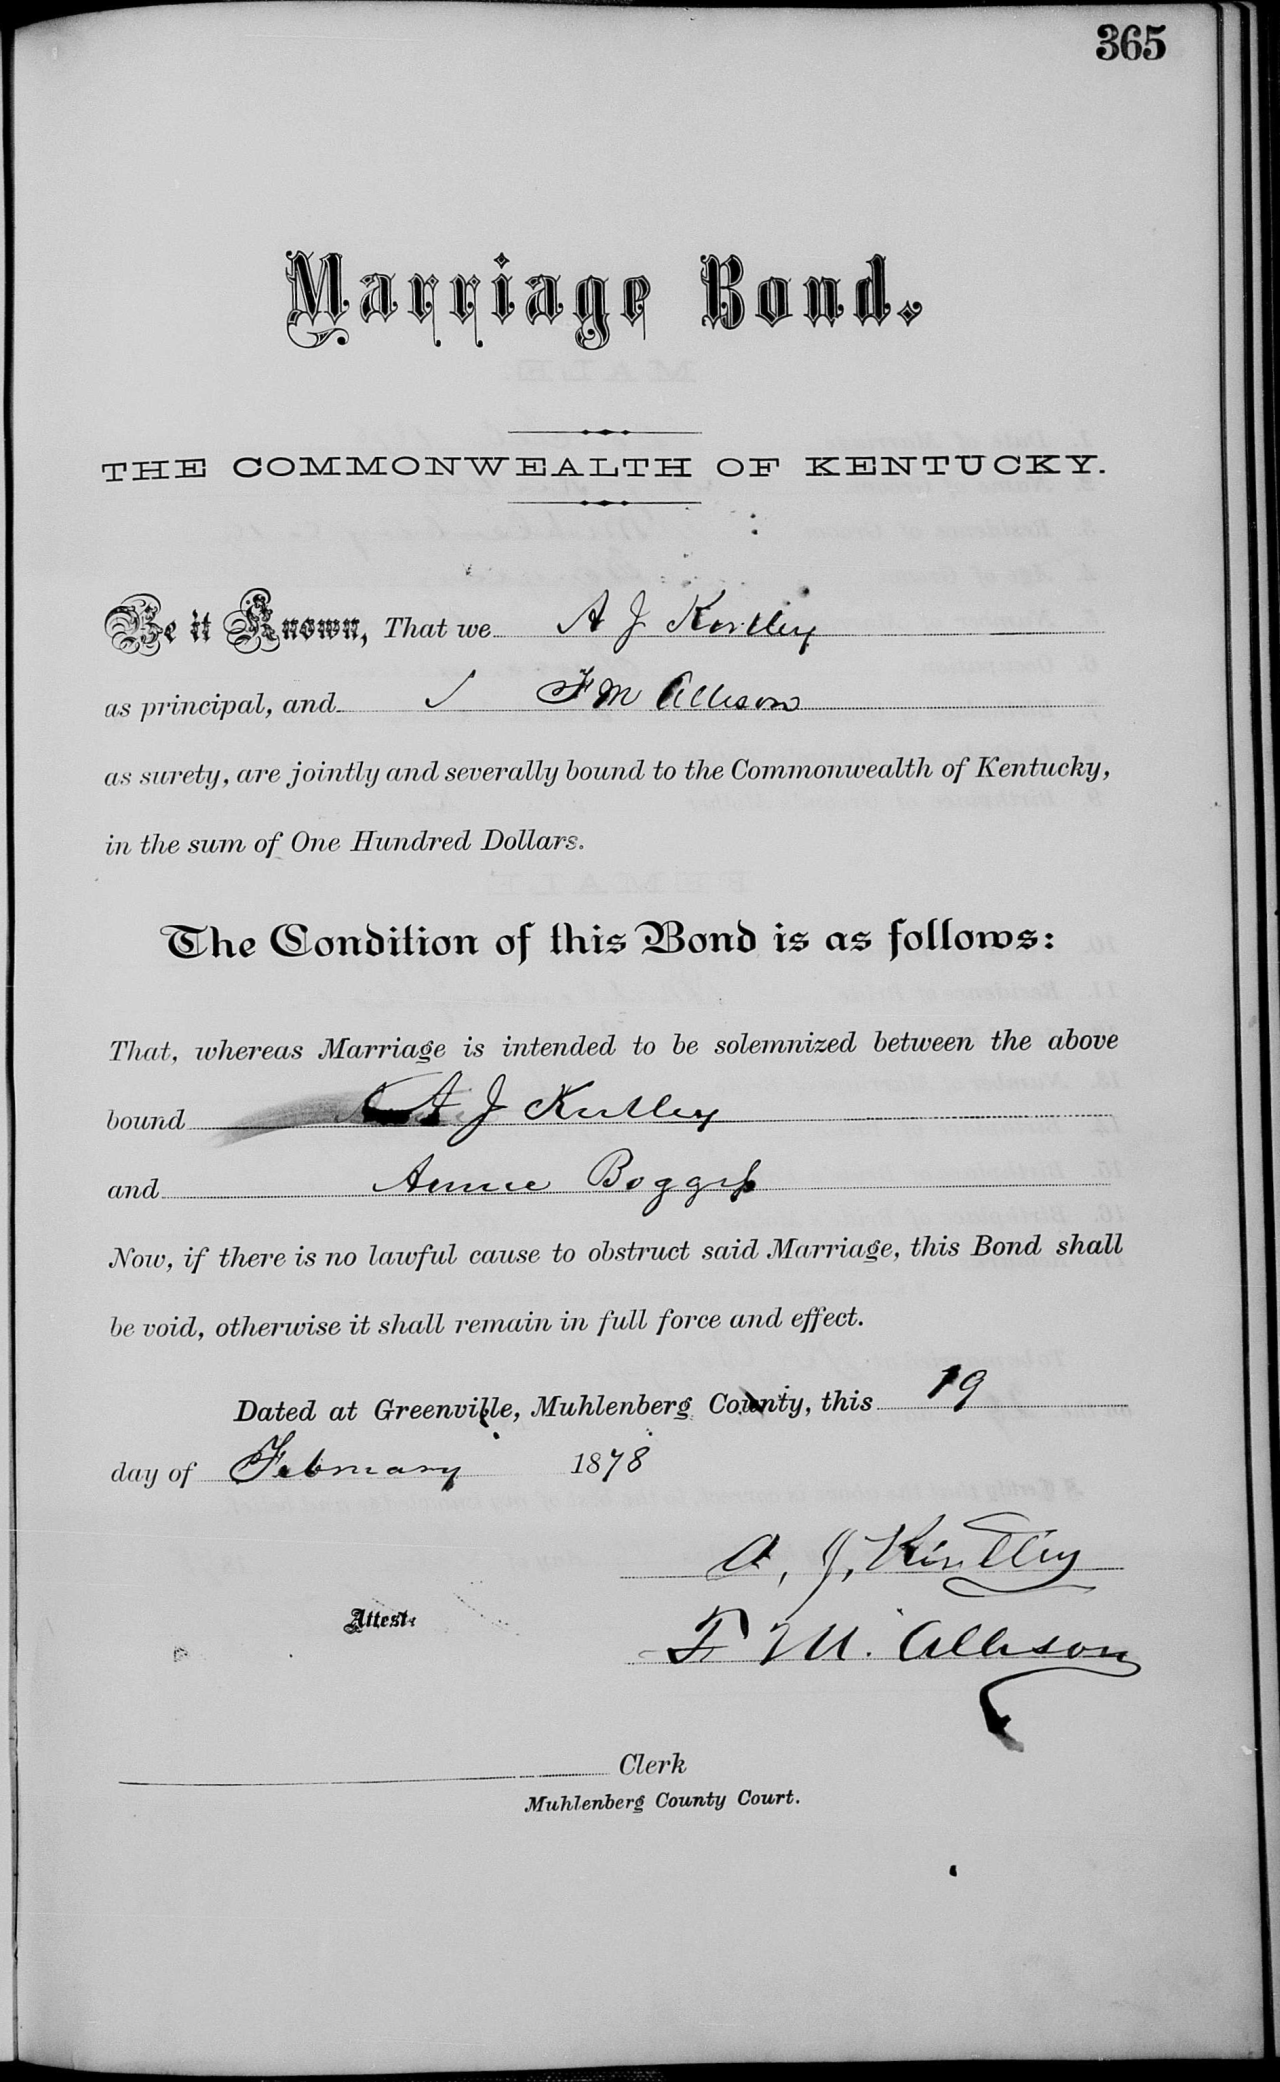 365
Marriage Bond.
THE COMMONWEALTH OF KENTUCKY.
Be it Known, That we A J Kirtley
as principal, and F M Allison
as surety, are jointly and severally bound to the Commonwealth of Kentucky,
in the sum of One Hundred Dollars.
The Condition of this Bond is as follows:
That, whereas Marriage is intended to be solemnized between the above
bound A J Kirtley
and Annie Boggess
Now, if there is no lawful cause to obstruct said Marriage, this Bond shall
be void, otherwise it shall remain in full force and effect.
Dated at Greenville, Muhlenberg County, this 19
day of February 1878
A. J. Kirtley
Attest:
F M. Allison
Clerk
Muhlenberg County Court.